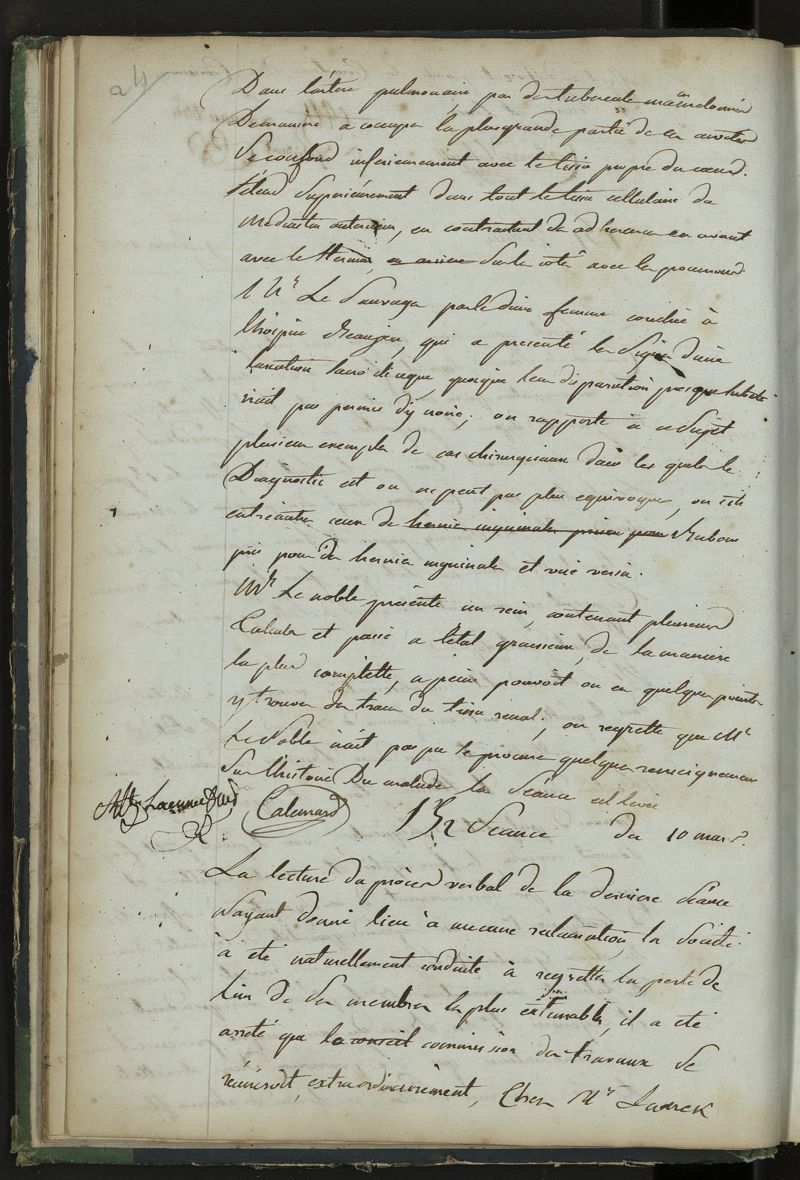 24
Dans l'artère pulmonaire, par des tubercules mamelonnés
Demaniere a occuper la plus grande partie de la cavité
Se confond inferieurement avec le tissu propre du cœur.
S'étend Superieurement dans tout le tissu cellulaire du
mediastin anterieur, en contractant des adherences en avant
avec le sternum, en arriere Sur les cotés avec les poumons
Mr Le Sauvage parle d'une femme couchée à
l'hospice Beaujon, qui a presenté les Signes d'une
luxation quoique leur disparution presque subite
n'ait pas permis d'y croire; on rapporte à ce Sujet
plusieurs exemples de cas chirurgicaux dans les quels le
Diagnostic est on ne peut pas plus equivoque, on cite
entr'autres ceux de hernies inguinales prises pour Bubons
pris pour des hernies inguinales et vice versa.
Mr Le noble présente un rein, contenant plusieurs
Calculs et passé a l'état graisseux, de la maniere
la plus complette, a peine pouvoit on en quelques points
y trouver des traces du tissu renal; on regrette que Mr
Le Noble n'ait pas pu se procurer quelques renseignemens
Sur l'histoire Du malade la Séance est levée
Calemard
152 Séance du 10 mars
La lecture du procès verbal de la derniere Séance
n'ayant donné lieu à aucune reclamation, la Société
à été naturellement conduite à regretter la perte de
l'un de Ses membres les plus estimables, il a été
arreté que la conseil commission des travaux Se
réuniroit, extraordinairement, Chez Mr